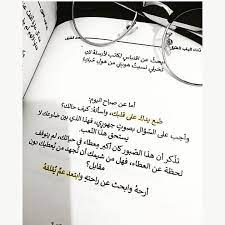 أبحثُ عن اقتباسٍ لكاتبٍ لأرسلهُ لك
تخبرني نسيتُ هويتي من هول
أما عن صباح اليوم:
ضع يدك على قلبك، واسألهُ: كيف حالك؟
وأجب على السُّؤال بصوتٍ جهوري، فهذا الذي بين ضلوعك لا
يستحق هذا التَّعب.
تذكّر أن هذا الصّبور كان أكبر معطاء في حياتك، لم يتوقف
لحظة عن العطاء، فهل من شيمك أن تُجهد من يُعطيك بدون
مقابل؟
أرحهُ وابحث عن راحتهِ وابتعد عمَّ يُقلقهُ